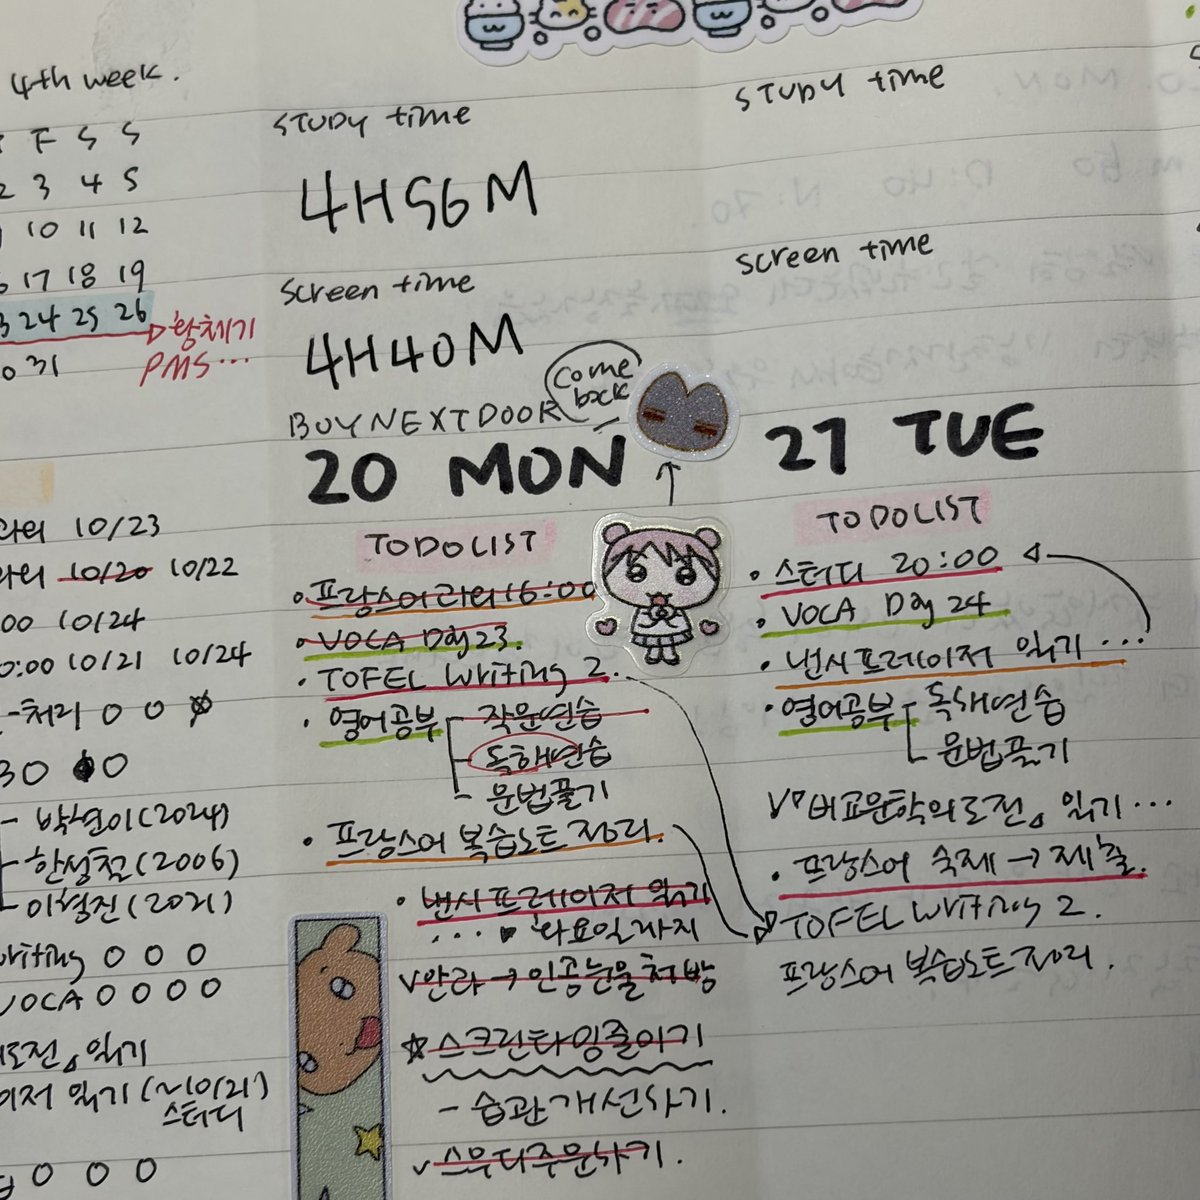 4th week.
F S S
2 3 4 5
10 11 12
17 18 19
24 25 26
황체기
PMS...
31
10/23
10/20 10/22
00 10/24
0:00 10/21 10/24
-처리 O O
30
- 박현이(2024)
- 한성철(2006)
- 이형진(2021)
writing O O O
VOCA O O O O
도전」 읽기
이저 읽기 (~10/21)
스터디
O O O
STUDY time
4H56M
screen time
4H40M
BOYNEXTDOOR
come
back
20 MON
TODOLIST
• 프랑스어 과외 16:00
• VOCA Day 23.
• TOFEL writing 2.
• 영어공부 - 작문연습
- 독해연습
- 문법풀기
• 프랑스어 복습노트 정리.
• 낸시프레이저 읽기
.... 화요일까지
v 안과 → 인공눈물 처방
☆ 스크린타임줄이기
- 습관개선하기.
v 스무디주문하기.
STUDY time
screen time
21 TUE
TODOLIST
• 스터디 20:00
• VOCA Day 24
• 낸시프레이저 읽기 ...
• 영어공부 - 독해연습
- 문법풀기
v 「비교문학의도전」 읽기...
• 프랑스어 숙제 → 제출.
TOFEL writing 2.
프랑스어 복습노트 정리.